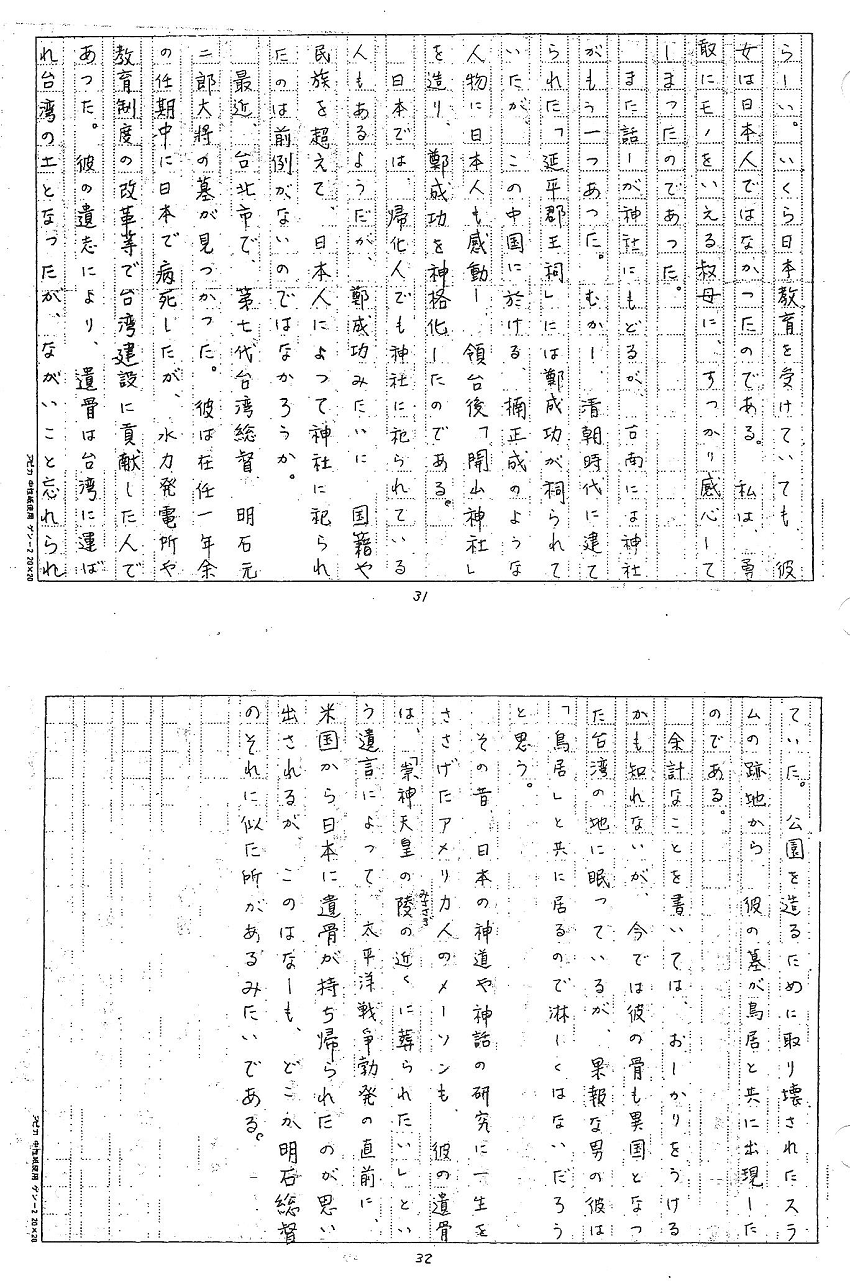 らしい。いくら日本教育を受けていても、彼
女は日本人ではなかったのである。私は、勇
敢にモノをいえる叔母に、すっかり感心して
しまったのであった。
また話しが神社にもどるが、台南には神社
がもう一つあった。むかし、清朝時代に建て
られた「延平郡王祠」には鄭成功が祠られて
いたが、この中国に於ける、楠正成のような
人物に日本人も感動し、領台後「開山神社」
を造り、鄭成功を神格化したのである。
日本では、帰化人でも神社に祀られている
人もあるようだが、鄭成功みたいに、国籍や
民族を超えて、日本人によって神社に祀られ
たのは前例がないのではなかろうか。
最近、台北市で、第七代台湾総督、明石元
二郎大将の墓が見つかった。彼は在任一年余
の任期中に日本で病死したが、水力発電所や
教育制度の改革等で台湾建設に貢献した人で
あった。彼の遺志により、遺骨は台湾に運ば
れ台湾の土となったが、ながいこと忘れられ
スピカ 中性紙使用 ケン-2 20×20
31
ていた。公園を造るために取り壊されたスラ
ムの跡地から、彼の墓が鳥居と共に出現した
のである。
余計なことを書いては、おしかりをうける
かも知れないが、今では彼の骨も異国となっ
た台湾の地に眠っているが、果報な男の彼は
「鳥居」と共に居るので淋しくはないだろう
と思う。
その昔、日本の神道や神話の研究に一生を
ささげたアメリカ人のメーソンも、彼の遺骨
は、「崇神天皇の陵みささぎの近くに葬られたい」とい
う遺言によって、太平洋戦争勃発の直前に、
米国から日本に遺骨が持ち帰られたのが思い
出されるが、このはなしも、どこか明石総督
のそれに似た所があるみたいである。
スピカ 中性紙使用 ケン-2 20×20
32